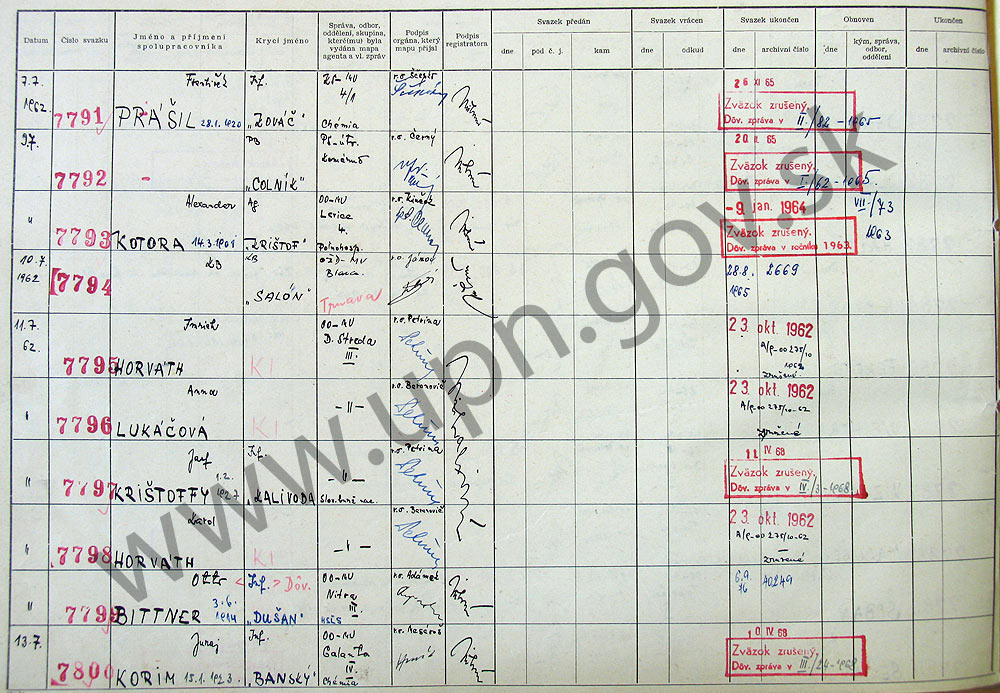 Datum
Číslo svazku
Jméno a příjmení
spolupracovníka
Krycí jméno
Správa, odbor,
oddělení, skupina,
které(mu) byla
vydána mapa
agenta a vl. zpráv
Podpis
orgána, který
mapu přijal
Podpis
registratora
Svazek předán
dne
pod č. j.
kam
Svazek vrácen
dne
odkud
Svazek ukončen
dne
archivní číslo
Obnoven
dne
kým, správa,
odbor,
oddělení
Ukončen
dne
archivní číslo
7.7.
1962
7791
František
PRÁŠIL 28.1.1920
Inf.
"KOVÁČ"
4/1
Chémia
26 XI 65
Zväzok zrušený.
Dôv. zpráva v II./82-1965
9.7.
7792
-
PB
"COLNÍK"
r.o. Černý
20 II. 65
Zväzok zrušený.
Dôv. zpráva v I/62-1965.
"
7793
Alexander
KOTORA 14.3.1908
Ag.
"KRIŠTOF"
OO-MV
Levice
4.
Poľnohosp.
-9. jan. 1964
VII/73
1963
Zväzok zrušený.
Dôv. zpráva v ročníku 1963.
10.7.
1962
7794
KB
KB
"SALÓN"
Trnava
28.8.
1965
2669
11.7.
62.
7795
Imrich
HORVÁTH
KI
OO-MV
D. Streda
III.
r.o. Petrina
23. okt. 1962
A/p-00275/10
1962
zrušené
"
7796
Anna
LUKÁČOVÁ
KI
-"-
r.o. Beronovič
23. okt. 1962
A/p-00275/10-62
zrušené
"
7797
Jozef
1.2.
KRIŠTOFFY 1927
Inf.
"KALIVODA"
-"-
r.o. Petrina
11. IV 68
Zväzok zrušený.
Dôv. zpráva v IV/3-1968
"
7798
Karol
HORVÁTH
KI
-"-
r.o. Beronovič
23. okt. 1962
A/p-00275/10-62
zrušené
"
7799
Otto
3.6.
BITTNER 1914
<Inf.> Dôv.
"DUŠAN"
OO-MV
Nitra
III.
r.o. Adámek
6.9.
76
40249
13.7.
7800
Juraj
KORIM 15.1.1923.
Inf.
"BANSKÝ"
OO-MV
Galanta
IV.
Chémia
r.o. Mesároš
10. IV 68
Zväzok zrušený.
Dôv. zpráva v III/24-1968
www.upn.gov.sk